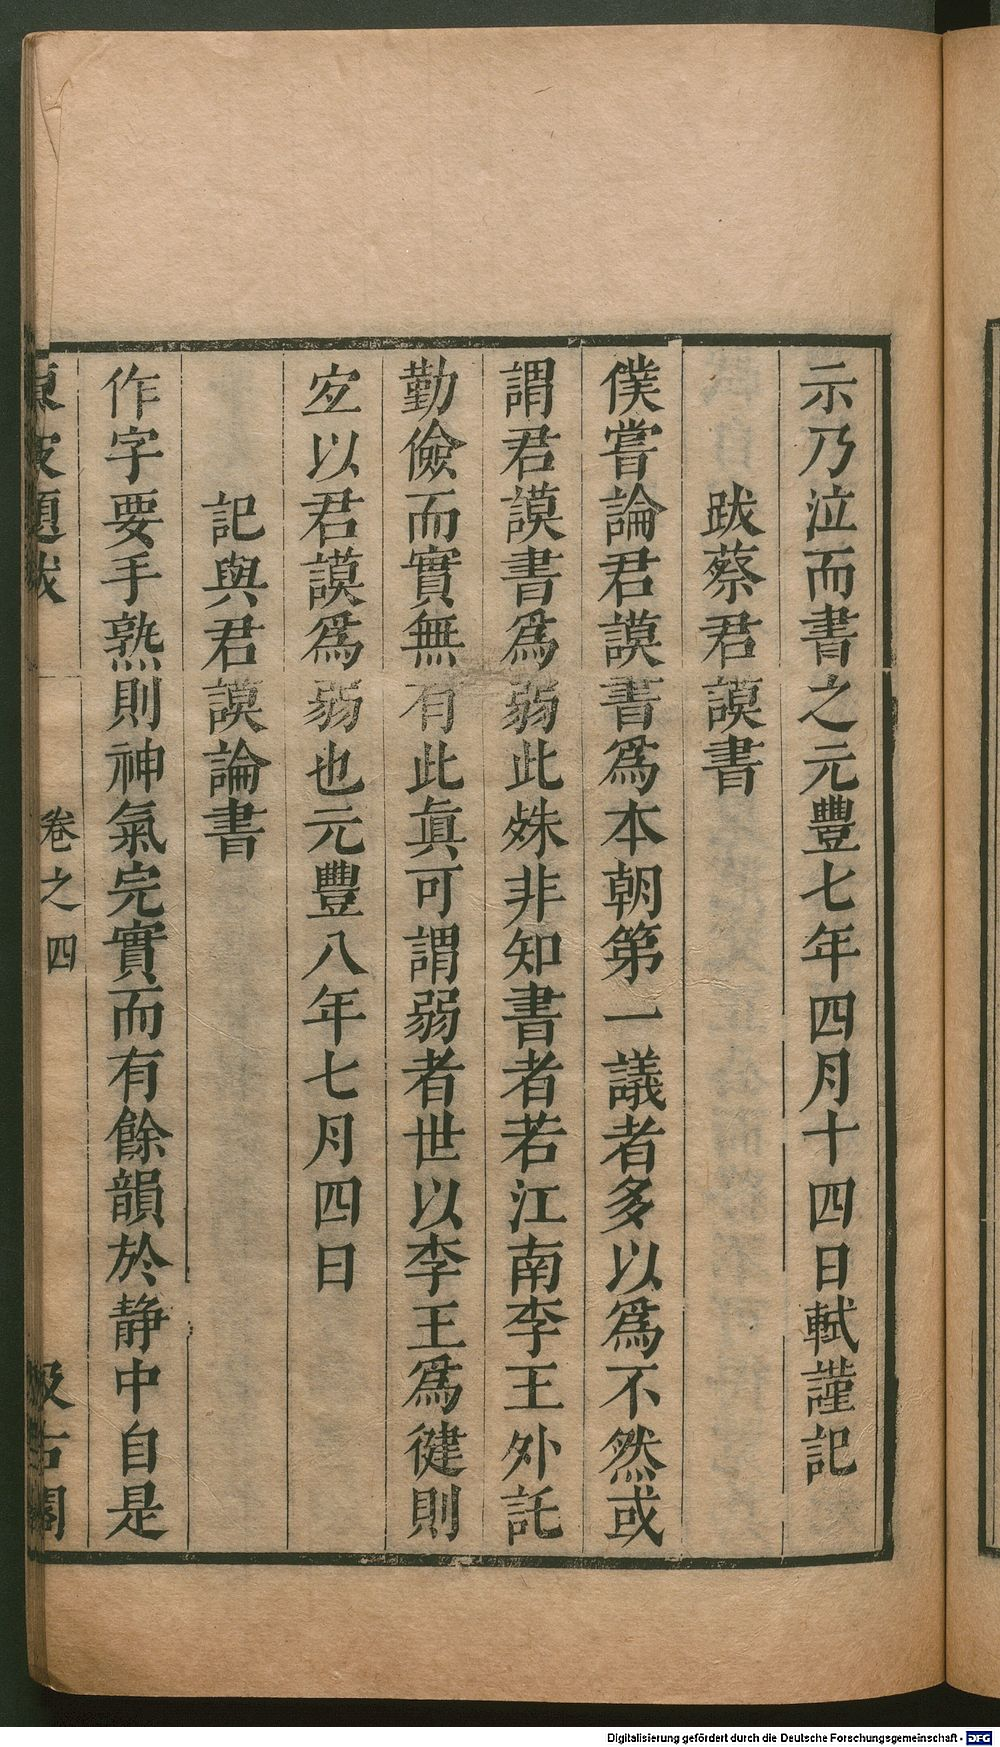 示乃泣而書之元豐七年四月十四日軾謹記
跋蔡君謨書
僕嘗論君謨書爲本朝第一議者多以爲不然或
謂君謨書爲弱此殊非知書者若江南李王外託
勤儉而實無有此眞可謂弱者世以李王爲徤則
宐以君謨爲弱也元豐八年七月四日
記與君謨論書
作字要手熟則神氣完實而有餘韻於静中自是
東坡題跋 卷之四 汲古閣
Digitalisierung gefördert durch die Deutsche Forschungsgemeinschaft - DFG